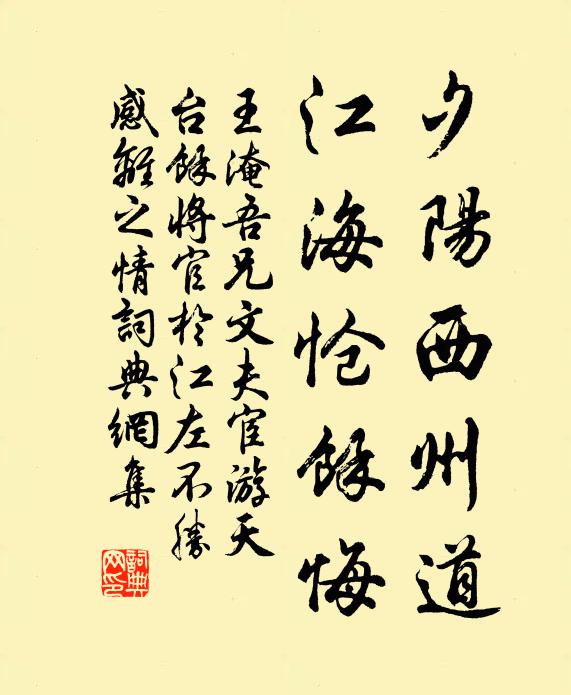 夕陽西州道
江海怆餘悔
王淹吾兄文夫宦游天
台餘将官於江左不勝
感離之情詞典網集
詞典
网印